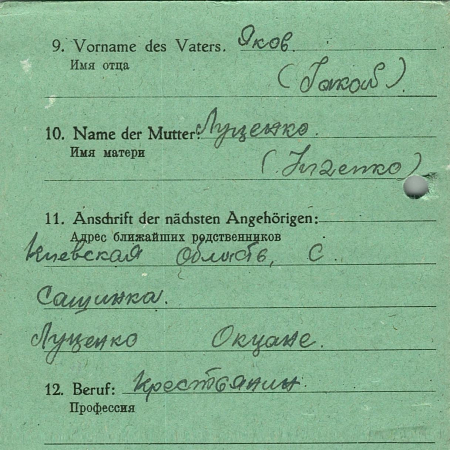 9. Vorname des Vaters. Яков
Имя отца
(Jakob)
10. Name der Mutter: Луценко
Имя матери
11. Anschrift der nächsten Angehörigen:
Адрес ближайших родственников
Киевская область, С.
Сащинка.
Луценко
12. Beruf: Крестьянин
Профессия